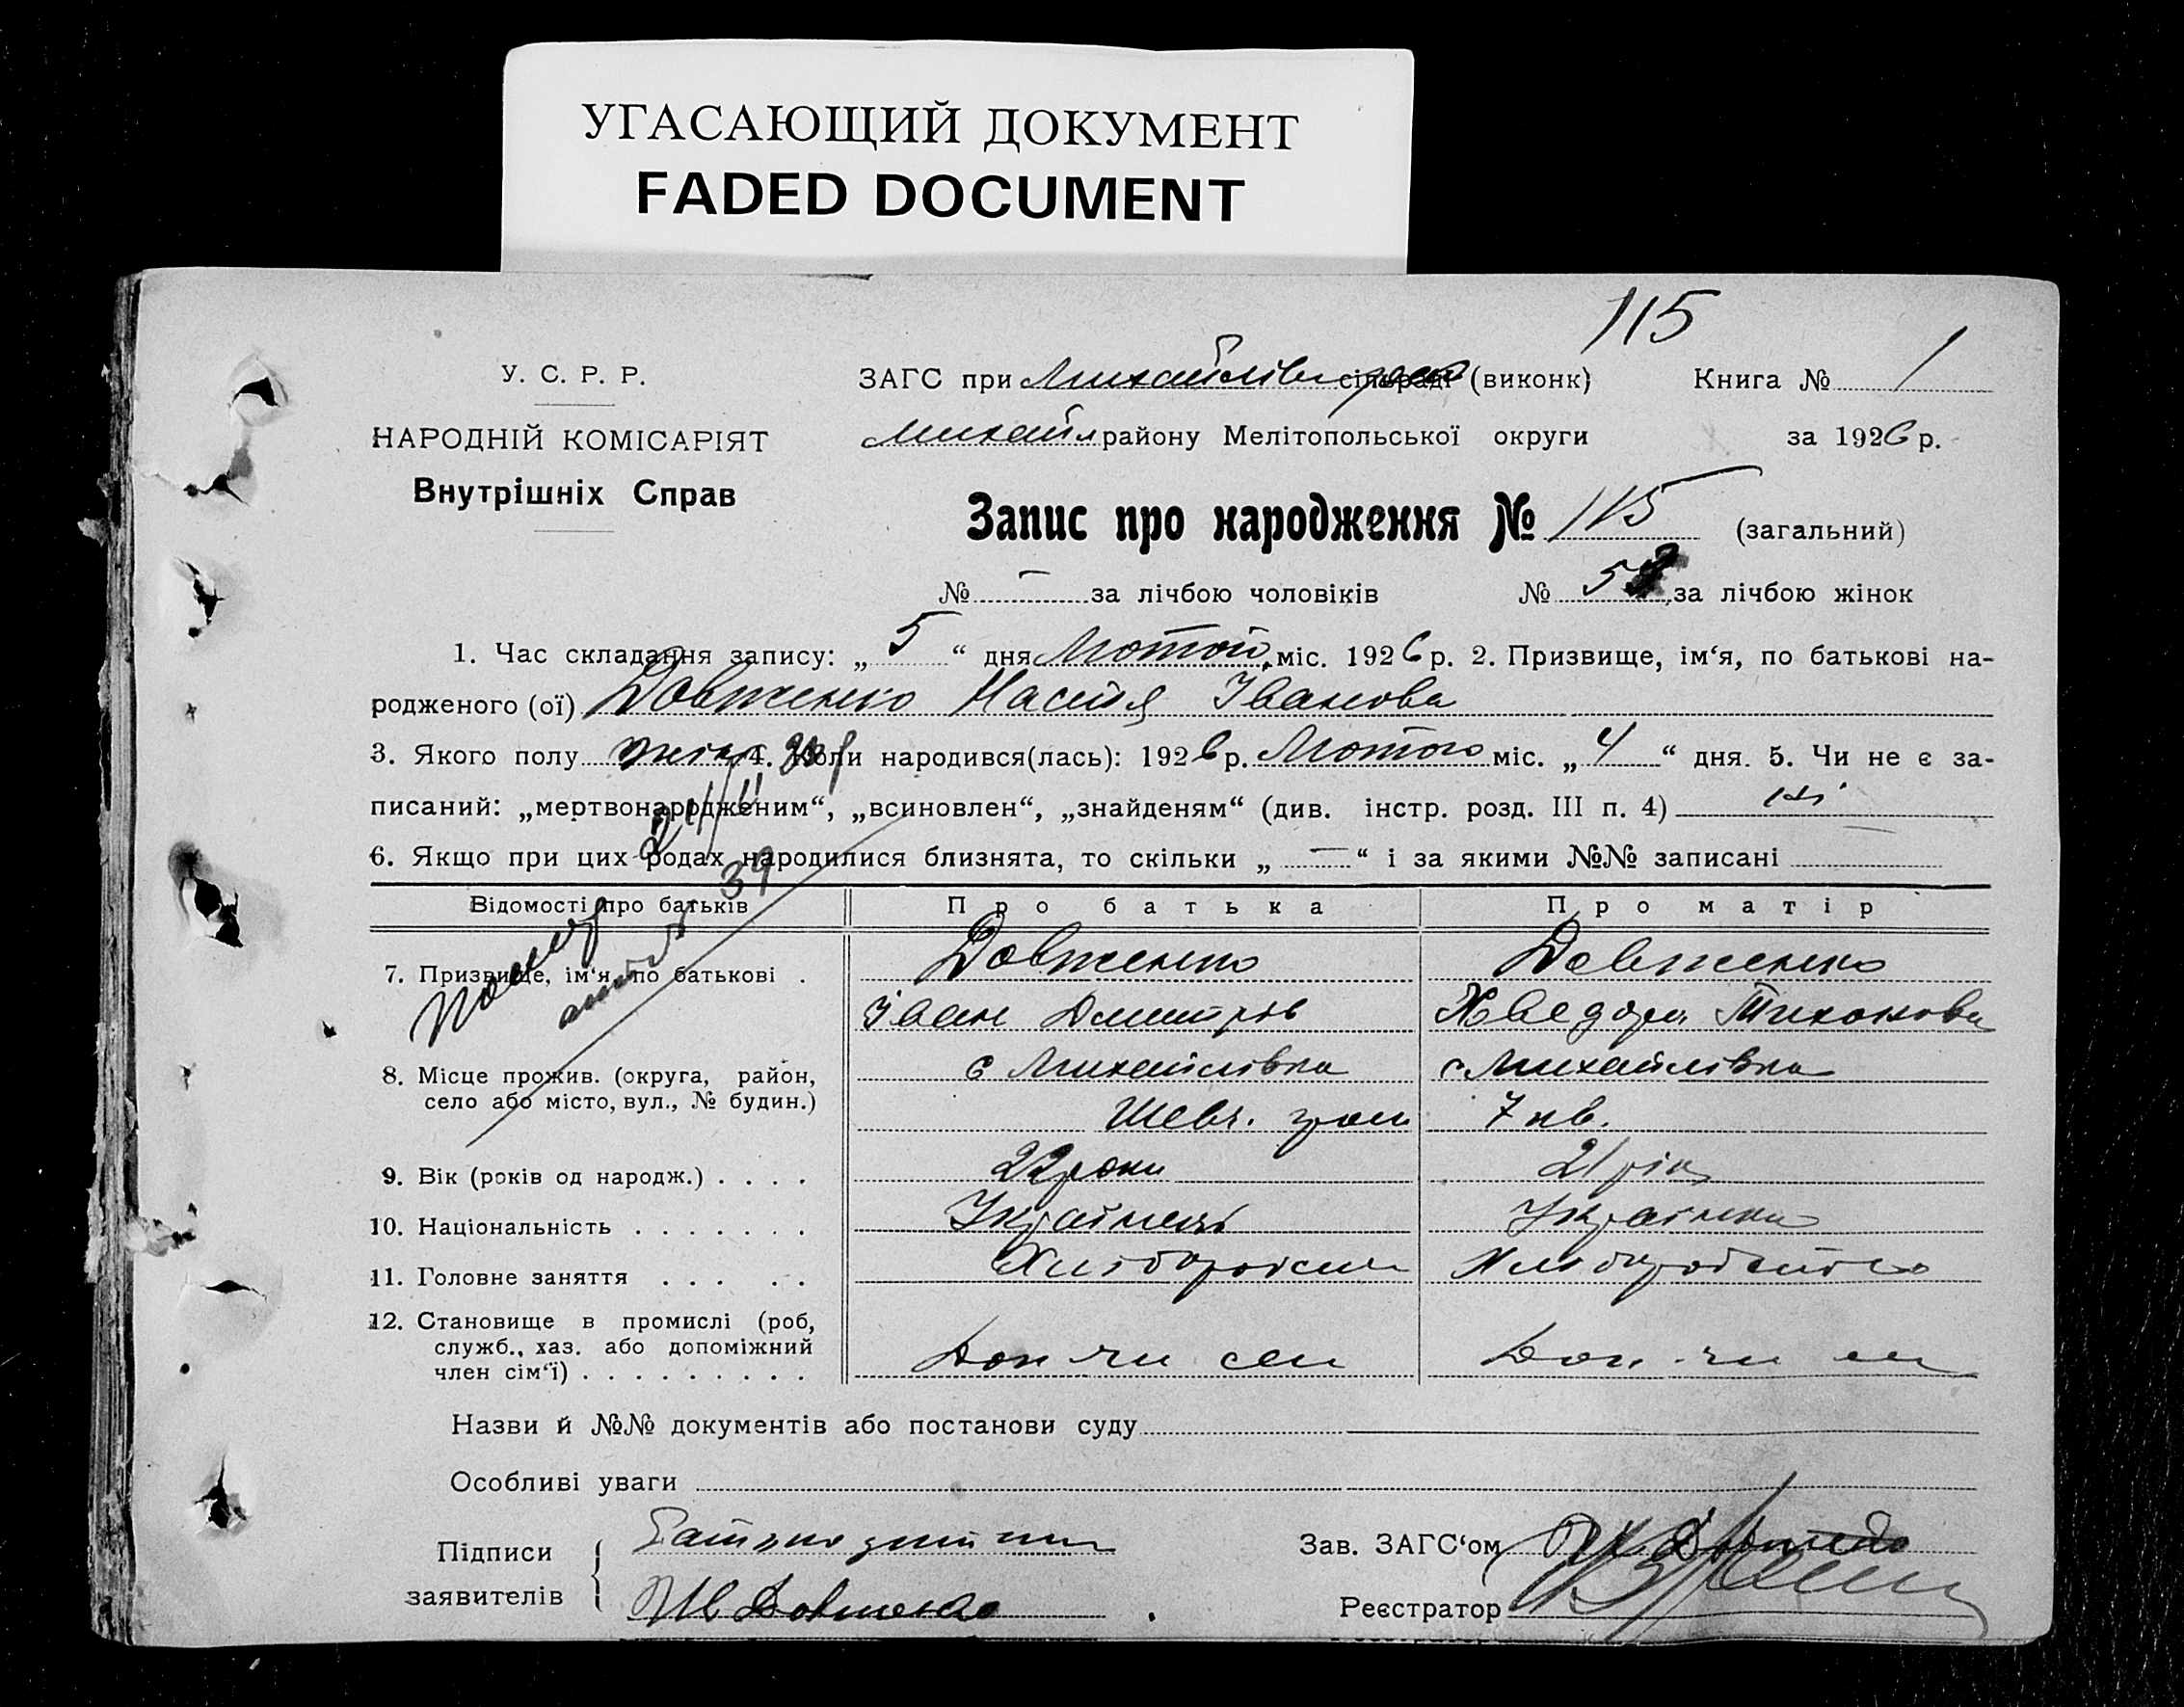 УГАСАЮЩИЙ ДОКУМЕНТ
FADED DOCUMENT
115
У. С. Р. Р.
НАРОДНІЙ КОМІСАРІЯТ
Внутрішніх Справ
ЗАГС при Михайлівськ сільраді (виконк) Книга № 1
Михайл району Мелітопольської округи за 1926 р.
Запис про народження № 115 (загальний)
№ — за лічбою чоловіків № 5 за лічбою жінок
1. Час складання запису: „ 5 “ дня Лютого міс. 1926 р. 2. Призвище, ім‘я, по батькові на-
родженого (ої) Довженко Настя Іванова
3. Якого полу жіноч 4. Коли народився(лась): 1926 р. Лютого міс. „ 4 “ дня. 5. Чи не є за-
писаний: „мертвонародженим“, „всиновлен“, „знайденям“ (див. інстр. розд. III п. 4) ні
6. Якщо при цих родах народилися близнята, то скільки „ — “ і за якими №№ записані
39
Відомості про батьків Про батька Про матір
7. Призвище, ім‘я, по батькові . Довженко Довженко
Іван Дмитров Хведора Тихонова
8. Місце прожив. (округа, район, с Михайлівка с Михайлівка
село або місто, вул., № будин.) Шевч. 7 кв.
9. Вік (років од народж.) . . . . 22 роки 21 рік
10. Національність . . . . . . . Українець Українка
11. Головне заняття . . . . . Хлібороб
12. Становище в промислі (роб,
служб., хаз. або допоміжний
член сім‘ї) . . . . . . . . . Доп чл сем Доп чл
Назви й №№ документів або постанови суду
Особливі уваги
Підписи
заявителів Довженко
Зав. ЗАГС‘ом
Реєстратор